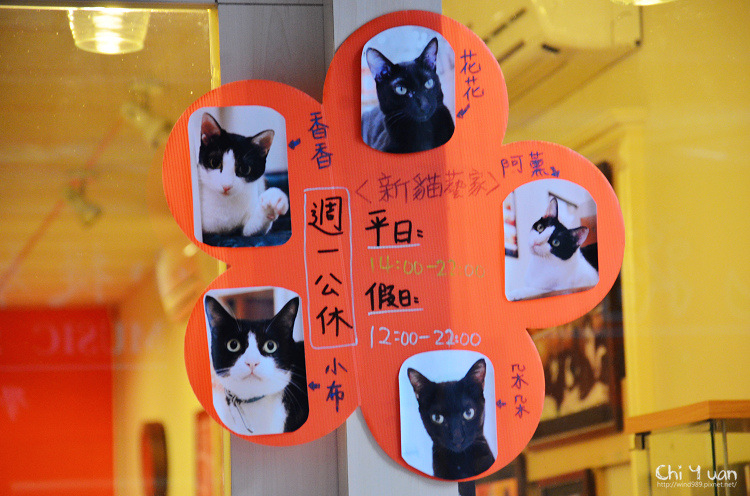 花花
香香
阿薰
＜新貓藝家＞
週一公休
平日:
14:00-22:00
假日:
12:00-22:00
小布
朵朵
MUSIC
Chi Yuan
http://wind989.pixnet.net/